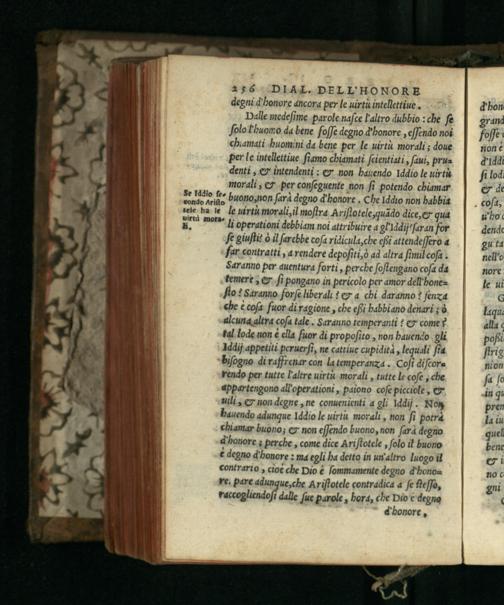 256 DIAL. DELL'HONORE
degni d'honore ancora per le uirtù intellettiue.
Dalle medesime parole nasce l'altro dubbio: che se
solo l'huomo da bene fosse degno d'honore, essendo noi
chiamati huomini da bene per le uirtù morali; doue
per le intellettiue siamo chiamati scientiati, saui, pru-
denti, & intendenti: & non hauendo Iddio le uirtù
morali, & per conseguente non si potendo chiamar
buono, non sarà degno d'honore. Che Iddio non habbia
le uirtù morali, il mostra Aristotele, quãdo dice, & qua
li operationi debbiam noi attribuire a gl'Iddij? saran for
se giusti? ò il sarebbe cosa ridicula, che eßi attendessero a
far contratti, a rendere depositi, ò ad altra simil cosa.
Saranno per auentura forti, perche sostengano cosa da
temere, & si pongano in pericolo per amor dell'hone-
sto? Saranno forse liberali? & a chi daranno? senza
che è cosa fuor di ragione, che eßi habbiano denari; ò
alcuna altra cosa tale. Saranno temperanti? & come?
tal lode non è ella fuor di proposito, non hauendo gli
Iddij appetiti peruersi, ne cattiue cupidità, lequali sia
bisogno di raffrenar con la temperanza. Cosi discor-
rendo per tutte l'altre uirtù morali, tutte le cose, che
appartengono all'operationi, paiono cose picciole, &
uili, & non degne, ne conuenienti a gli Iddij. Non
hauendo adunque Iddio le uirtù morali, non si potrà
chiamar buono; & non essendo buono, non sarà degno
d'honore; perche, come dice Aristotele, solo il buono
è degno d'honore: ma egli ha detto in un'altro luogo il
contrario, cioè che Dio è sommamente degno d'hono-
re. pare adunque, che Aristotele contradica a se stesso,
raccogliendosi dalle sue parole, hora, che Dio è degno
d'honore,
Se Iddio se-
condo Aristo
tele ha le
uirtù mora-
li.